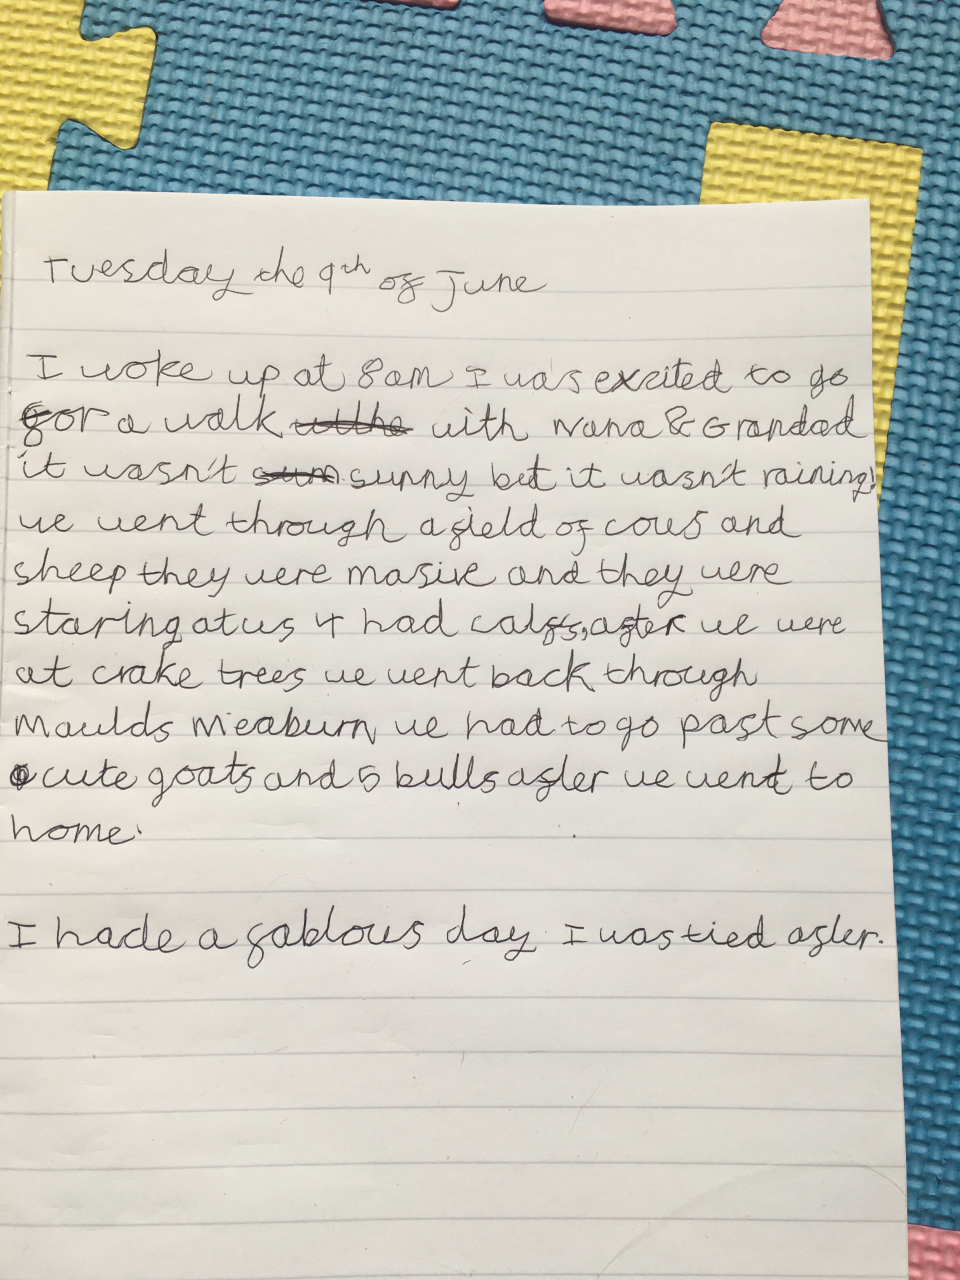 Tuesday the 9th of June
I woke up at 8am I was excited to go
for a walk with Nana & Grandad
it wasn't sunny but it wasn't raining.
we went through a field of cows and
sheep they were masive and they were
staring at us & had calfs, after we were
at crake trees we went back through
Maulds Meaburn, we had to go past some
cute goats and 5 bulls after we went to
home.
I hade a fablous day I was tied after.